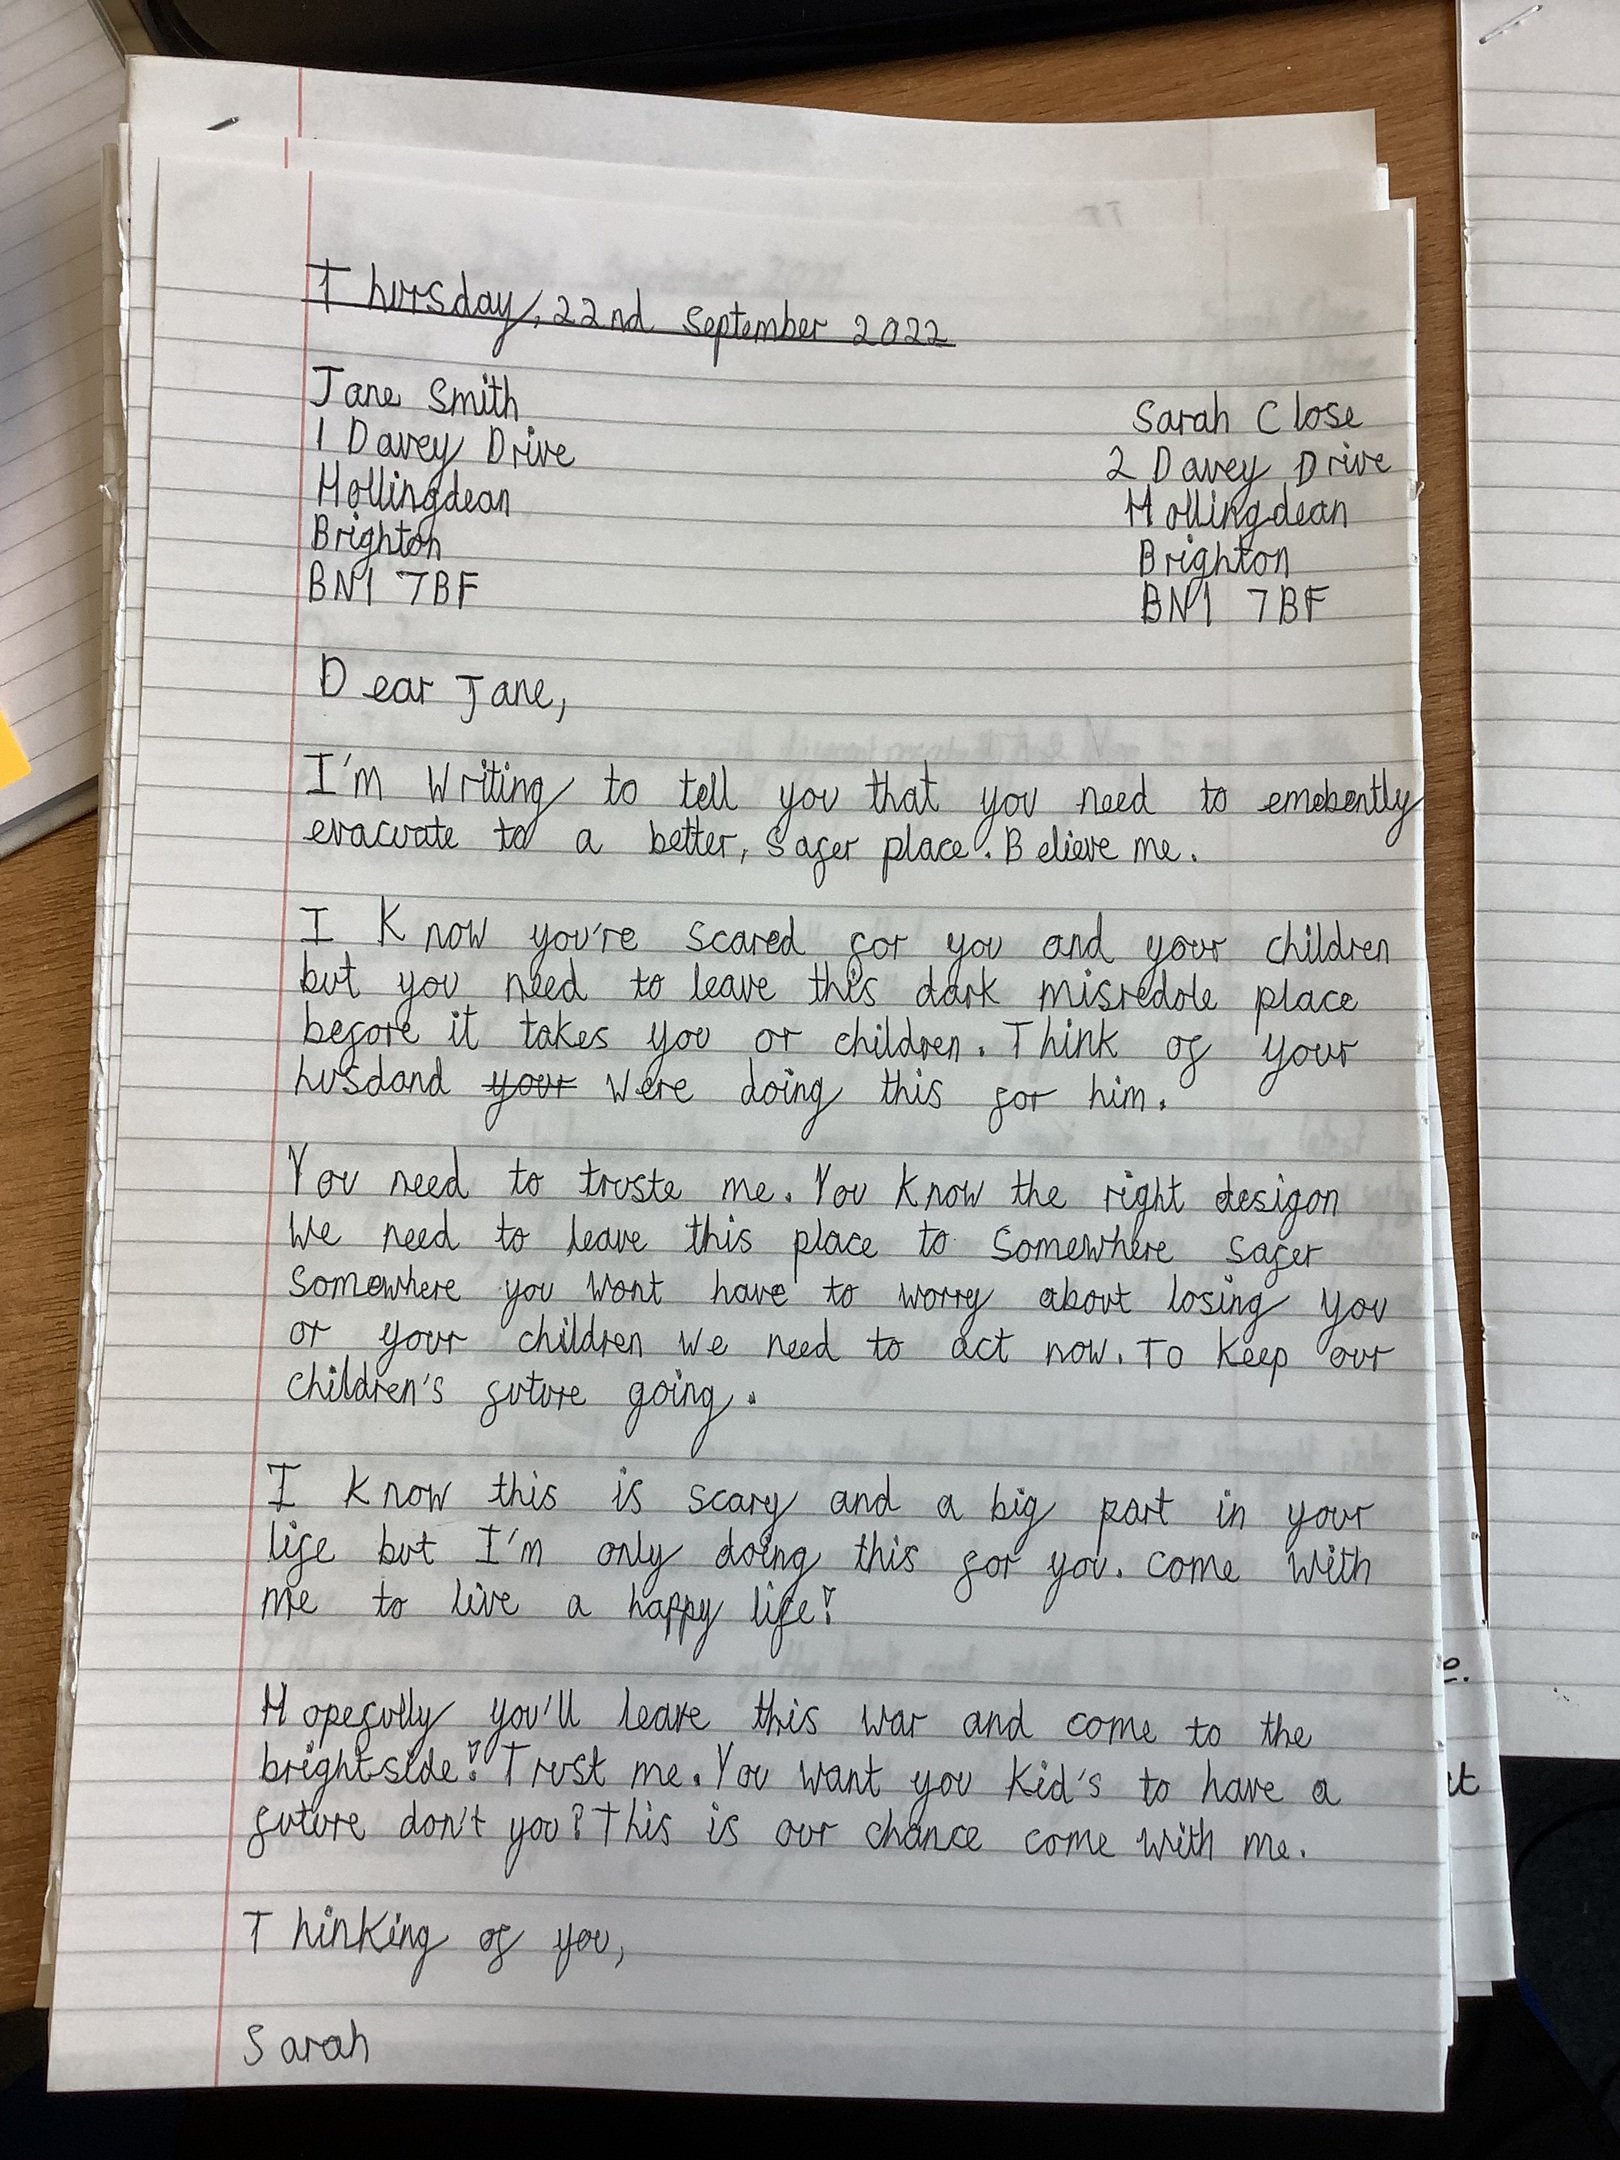 Thursday, 22nd September 2022
Jane Smith
1 Davey Drive
Hollingdean
Brighton
BN1 7BF
Sarah Close
2 Davey Drive
Hollingdean
Brighton
BN1 7BF
Dear Jane,
I'm writing to tell you that you need to emebently
evacuate to a better, safer place. Believe me.
I Know you're scared for you and your children
but you need to leave this dark misredole place
before it takes you or children. Think of your
husdand your were doing this for him.
You need to truste me. You know the right desigon
We need to leave this place to somewhere safer
somewhere you wont have to worry about losing you
or your children we need to act now. To keep our
children's future going.
I know this is scary and a big part in your
life but I'm only doing this for you. come with
me to live a happy life!
Hopefully you'll leave this war and come to the
brightside! Trust me. You want you kid's to have a
future don't you? This is our chance come with me.
Thinking of you,
Sarah